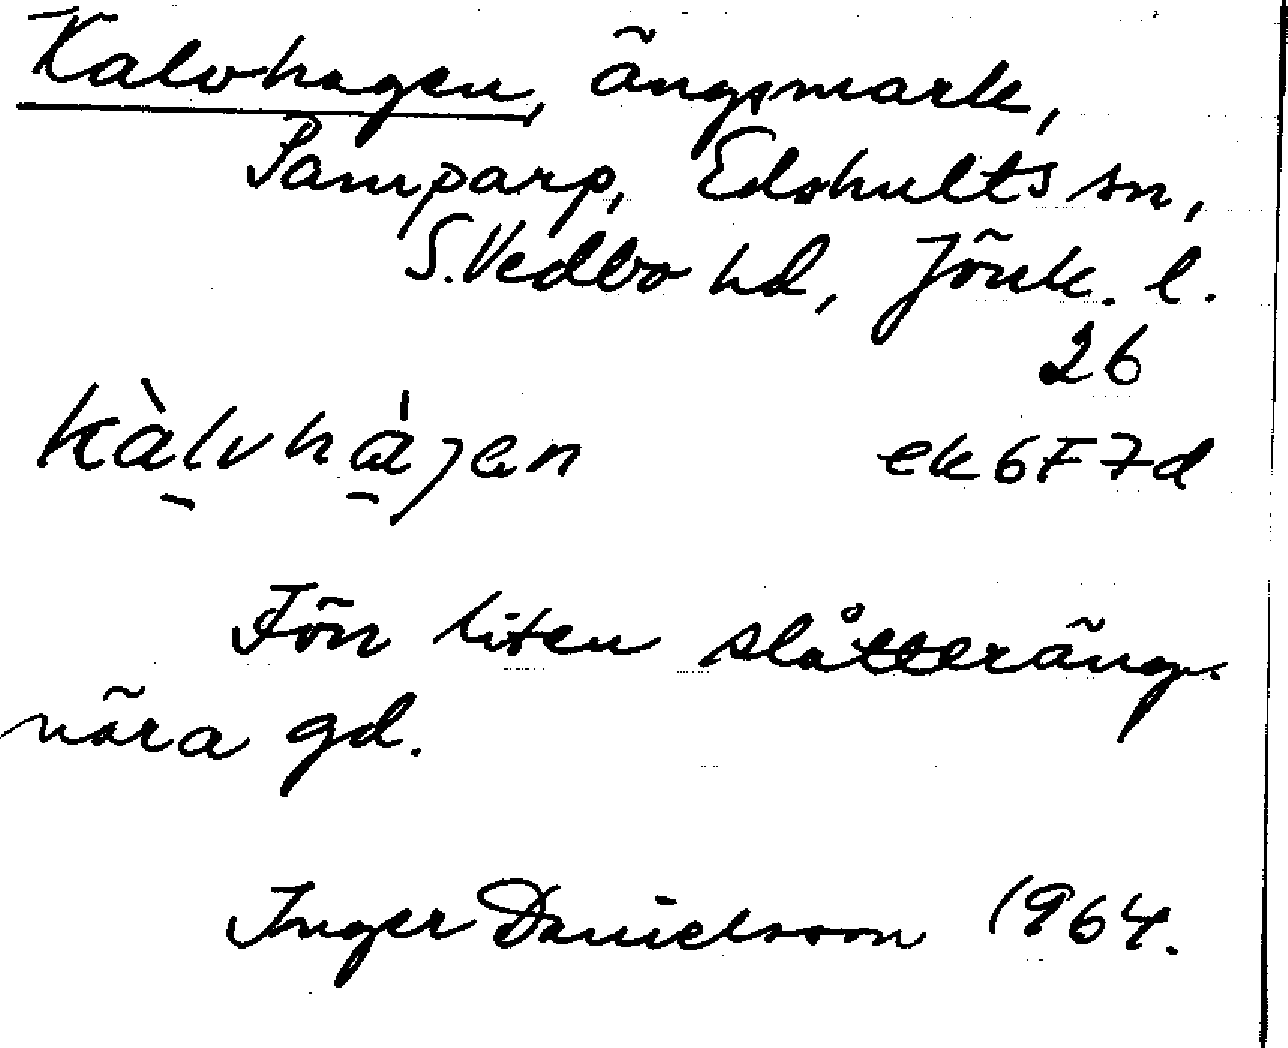 Kalvhagen, ängsmark,
Samparp, Edshults sn,
S. Vedbo hd, Jönk. l.
26
kàlvhágen ek 6F7d
Förr liten slåtteräng
nära gd.
Inger Danielsson 1964.